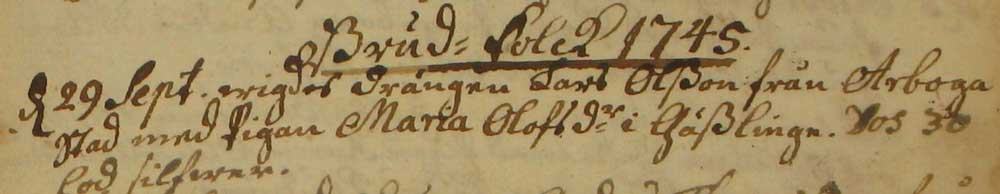 Brud-Folck 1745.
D 29 Sept. wigdes drängen Lars Olsson från Arboga
Stad med Pigan Maria Olofsdr i Gäßlinge. 30
lod silfwer.